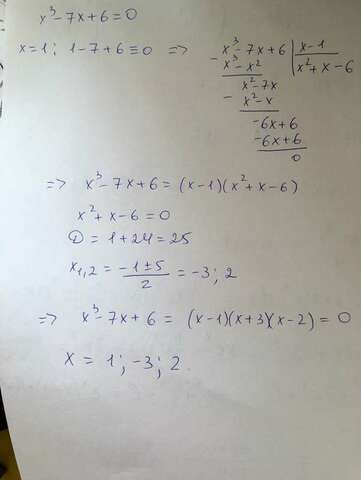 x³-7x+6=0
x=1; 1-7+6≡0 => - x³-7x+6 | x-1
x³-x² | x²+x-6
x²-7x
- x²-x
-6x+6
-6x+6
0
=> x³-7x+6=(x-1)(x²+x-6)
x²+x-6=0
D=1+24=25
x₁,₂=(-1±5)/2=-3; 2
=> x³-7x+6=(x-1)(x+3)(x-2)=0
x=1; -3; 2.